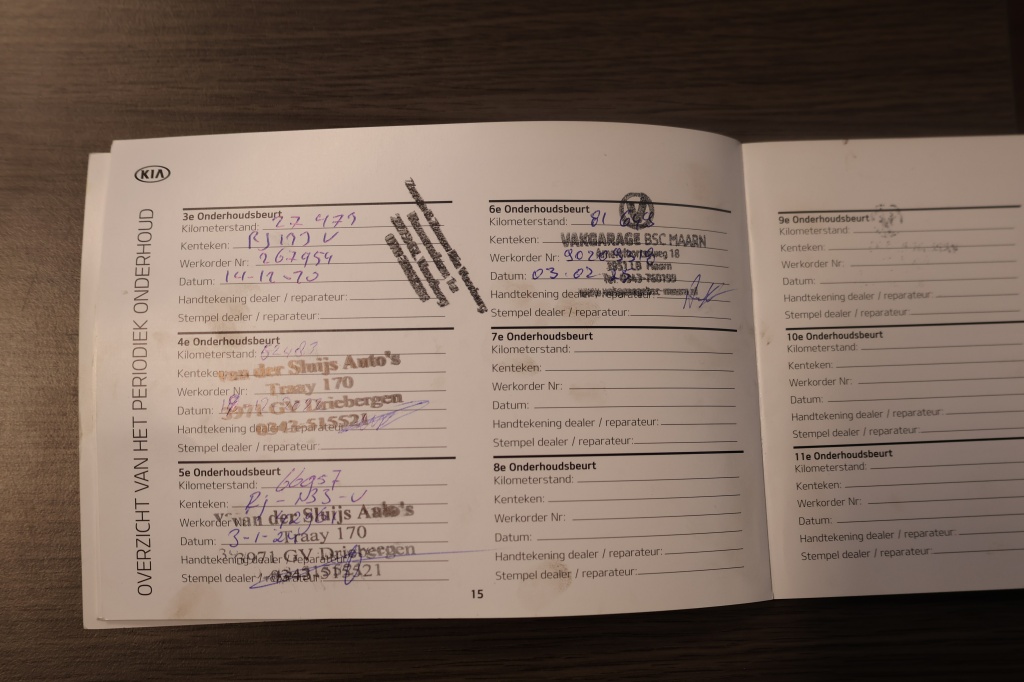 KIA
OVERZICHT VAN HET PERIODIEK ONDERHOUD
3e Onderhoudsbeurt
Kilometerstand: 27 479
Kenteken:
Werkorder Nr: 267954
Datum: 14-12-20
Handtekening dealer / reparateur:
Stempel dealer / reparateur:
4e Onderhoudsbeurt
Kilometerstand:
Kenteken:
van der Sluijs Auto's
Werkorder Nr:
Traay 170
Datum:
3971 GV Driebergen
Handtekening dealer / reparateur:
0343-515521
Stempel dealer / reparateur:
5e Onderhoudsbeurt
Kilometerstand: 66957
Kenteken:
Werkorder Nr:
van der Sluijs Auto's
Datum: 3-1-24
Traay 170
3971 GV Driebergen
Handtekening dealer / reparateur:
Stempel dealer / reparateur:
0343-515521
6e Onderhoudsbeurt
Kilometerstand: 81
Kenteken:
VAKGARAGE BSC MAARN
Werkorder Nr:
Datum: 03-02
3951 LB Maarn
Tel. 0343-760199
Handtekening dealer / reparateur:
Stempel dealer / reparateur:
7e Onderhoudsbeurt
Kilometerstand:
Kenteken:
Werkorder Nr:
Datum:
Handtekening dealer / reparateur:
Stempel dealer / reparateur:
8e Onderhoudsbeurt
Kilometerstand:
Kenteken:
Werkorder Nr:
Datum:
Handtekening dealer / reparateur:
Stempel dealer / reparateur:
15
9e Onderhoudsbeurt
Kilometerstand:
Kenteken:
Werkorder Nr:
Datum:
Handtekening dealer / reparateur:
Stempel dealer / reparateur:
10e Onderhoudsbeurt
Kilometerstand:
Kenteken:
Werkorder Nr:
Datum:
Handtekening dealer / reparateur:
Stempel dealer / reparateur:
11e Onderhoudsbeurt
Kilometerstand:
Kenteken:
Werkorder Nr:
Datum:
Handtekening dealer / reparateur:
Stempel dealer / reparateur: